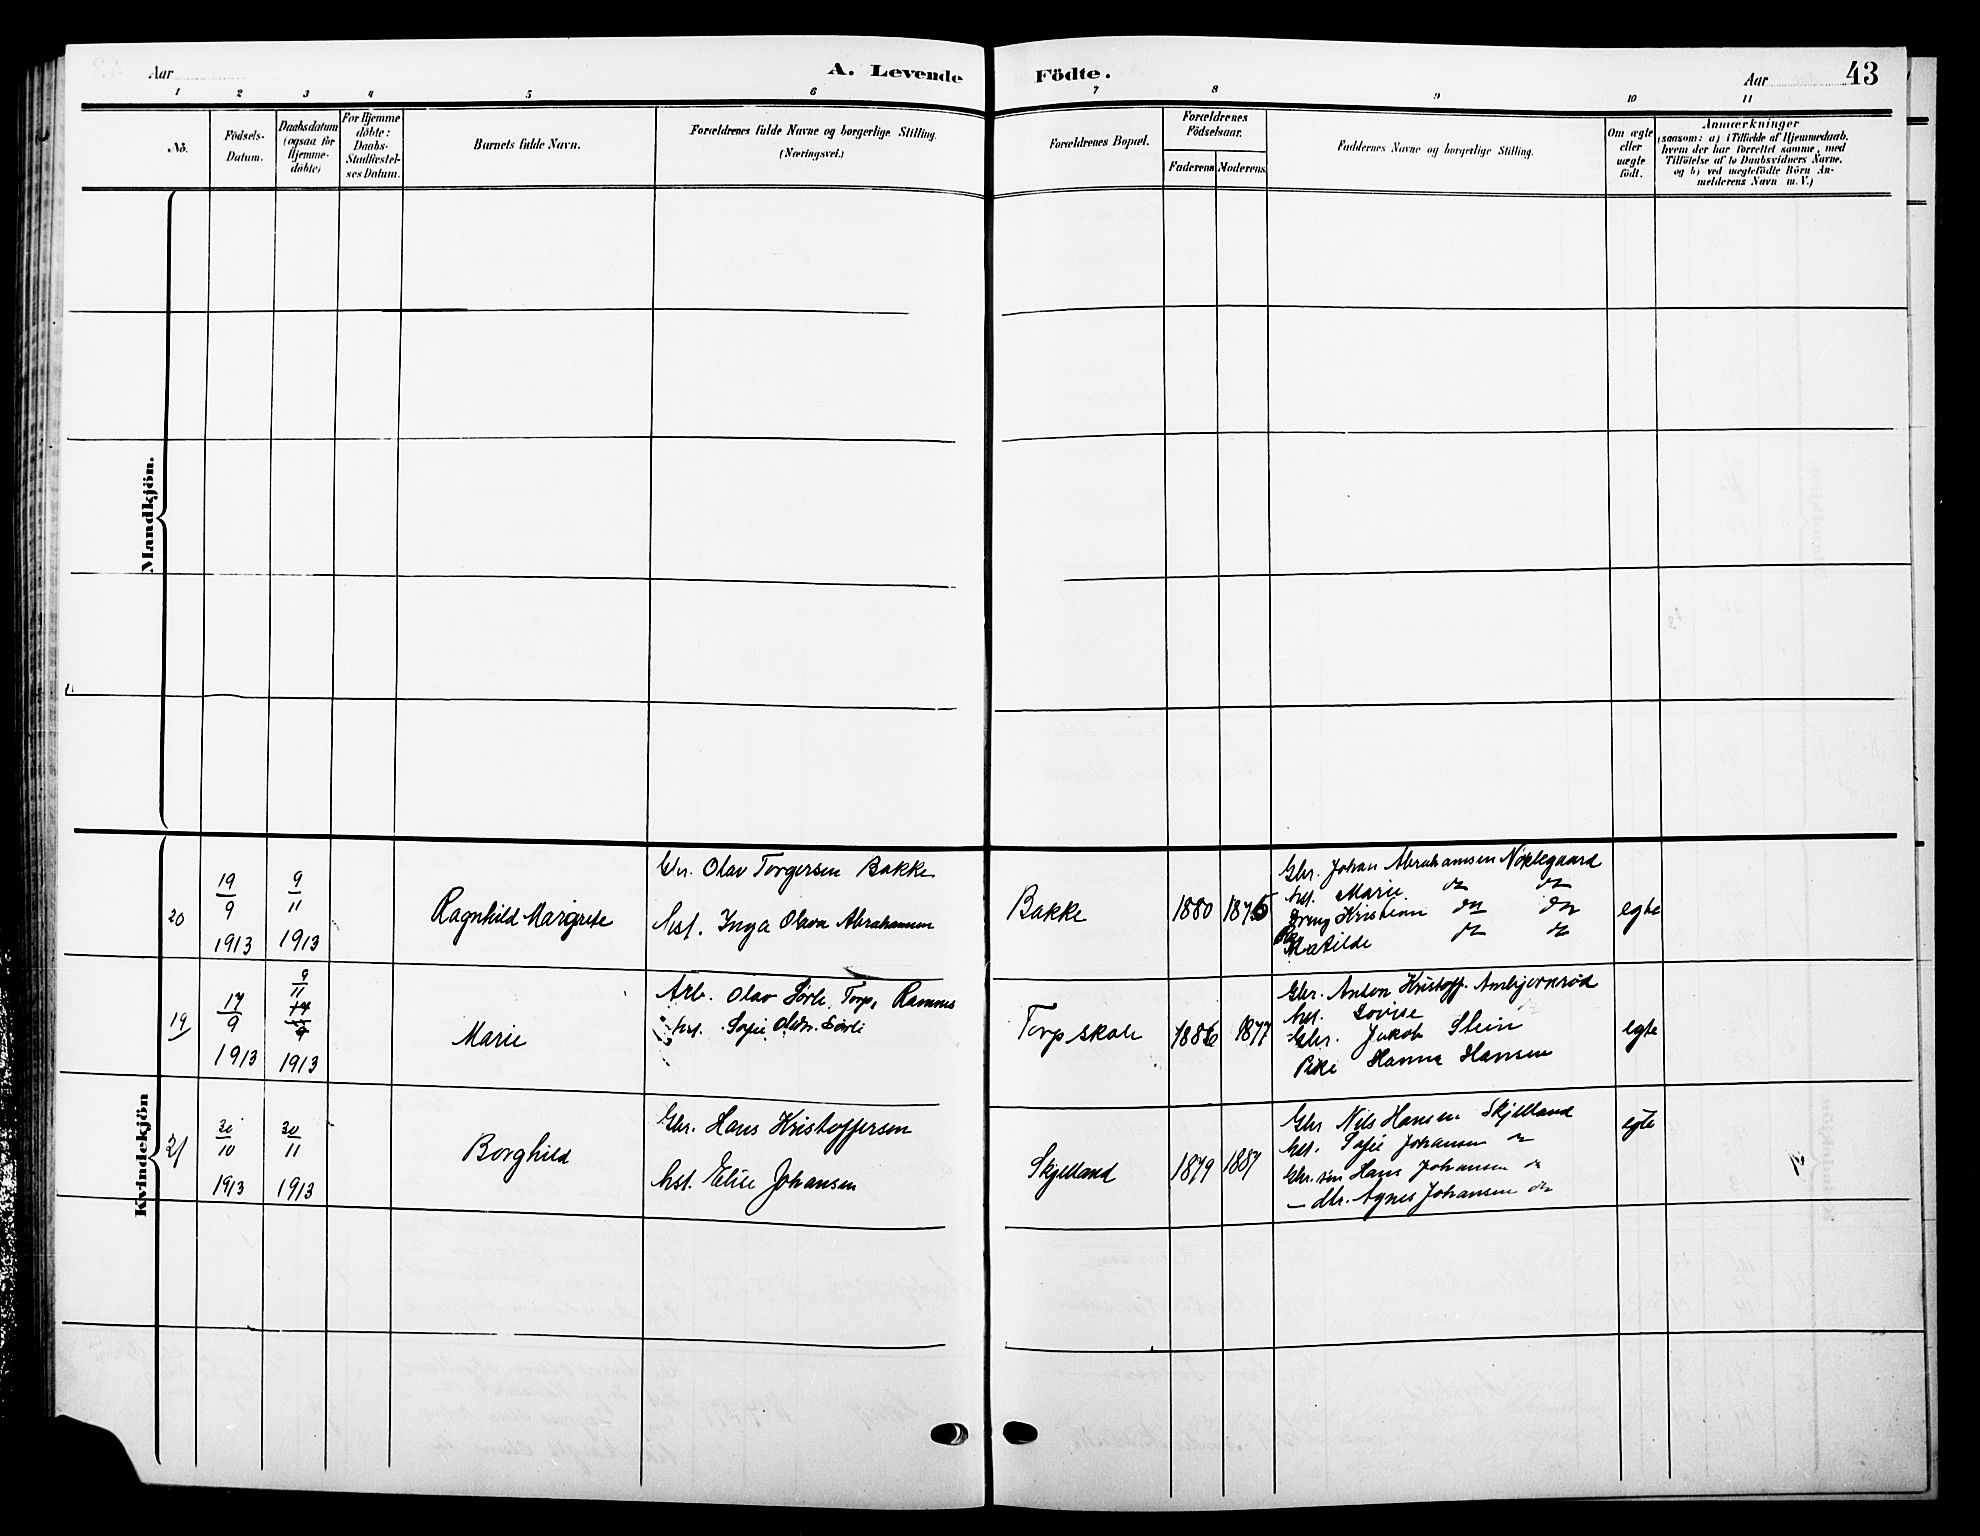 Aar
A. Levende Födte.
Aar
43
1 2 3 4 5 6 7 8 9 10 11
Nô.
Födsels-
Datum.
Daabsdatum
(ogsaa for
Hjemme-
döbte)
For Hjemme
döbte:
Daabs-
Stadfæstel-
ses Datum.
Barnets fulde Navn.
Forældrenes fulde Navne og borgerlige Stilling.
(Næringsvei.)
Forældrenes Bopæl.
Forældrenes
Födselsaar.
Faderens
Moderens
Faddernes Navne og borgerlige Stilling.
Om ægte
eller
uægte
födt.
Anmærkninger
(saasom: a) i Tilfælde af Hjemmedaab.
hvem der har forrettet samme, med
Tilföielse af to Daabsvidners Navne.
og b) ved uægtefödte Börn An-
melderens Navn m. V.)
Mandkjön.
Kvindekjön
20
19/9
1913
9/11
1913
Ragnhild Margrete
Gr. Olav Torgersen Bakke
hst. Inga Olava Abrahamsen
Bakke
1880
1876
Gbr. Johan Abrahamsen Noklegaard
hst. Marie do do
Dreng Kristian do do
Pike Matilde do do
egte
19
17/9
1913
9/11
1913
Marie
Arb. Olav Sørli, Torp, Ramnes
hst. Sofie Olsdr. Sørli
Torp skole
1886
1877
Gbr. Anton Kristoff. Ambjørnrød
hst. Lovise
Gbr. Jakob Stein
Pike Hanna Hansen
egte
21
30/11
1913
1913
Borghild
Gbr. Hans Kristoffersen
hst. Elise Johansen
Skjelland
1879
1887
Gbr Nils Hansen Skjelland
hst. Sofie Johansen do
Gbr. søn Hans Johansen do
— dtr. Agnes Johansen do
egte